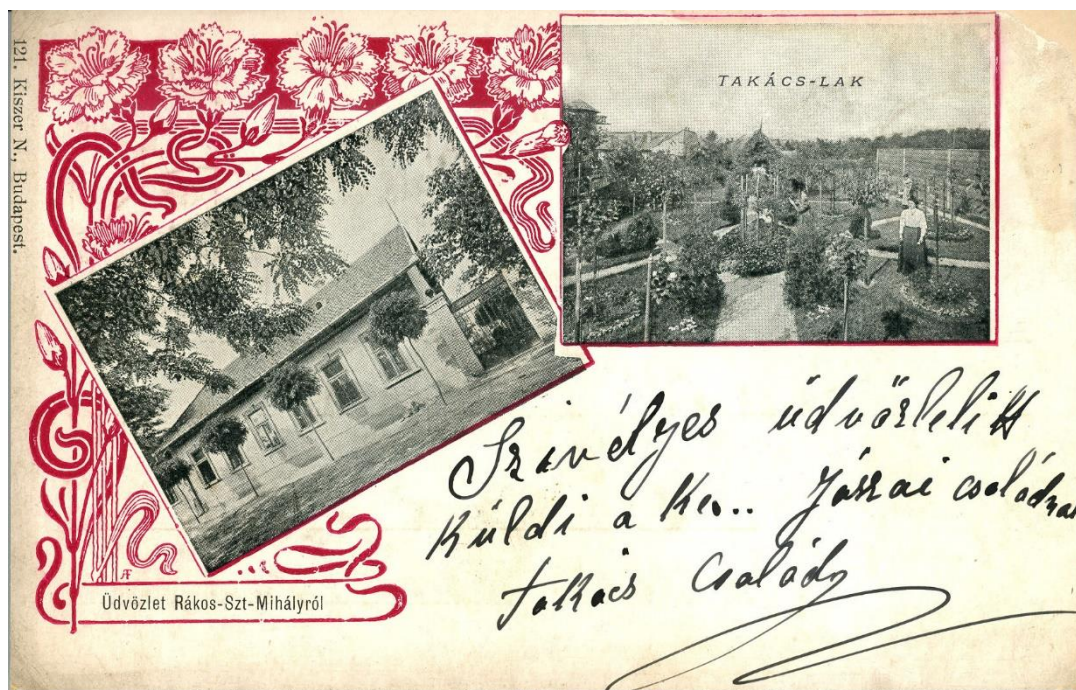 121. Kiszer N., Budapest.
TAKÁCS-LAK
Üdvözlet Rákos-Szt-Mihályról
Szivélyes üdvözletitt
küldi a Jászai családnak
Takács Család